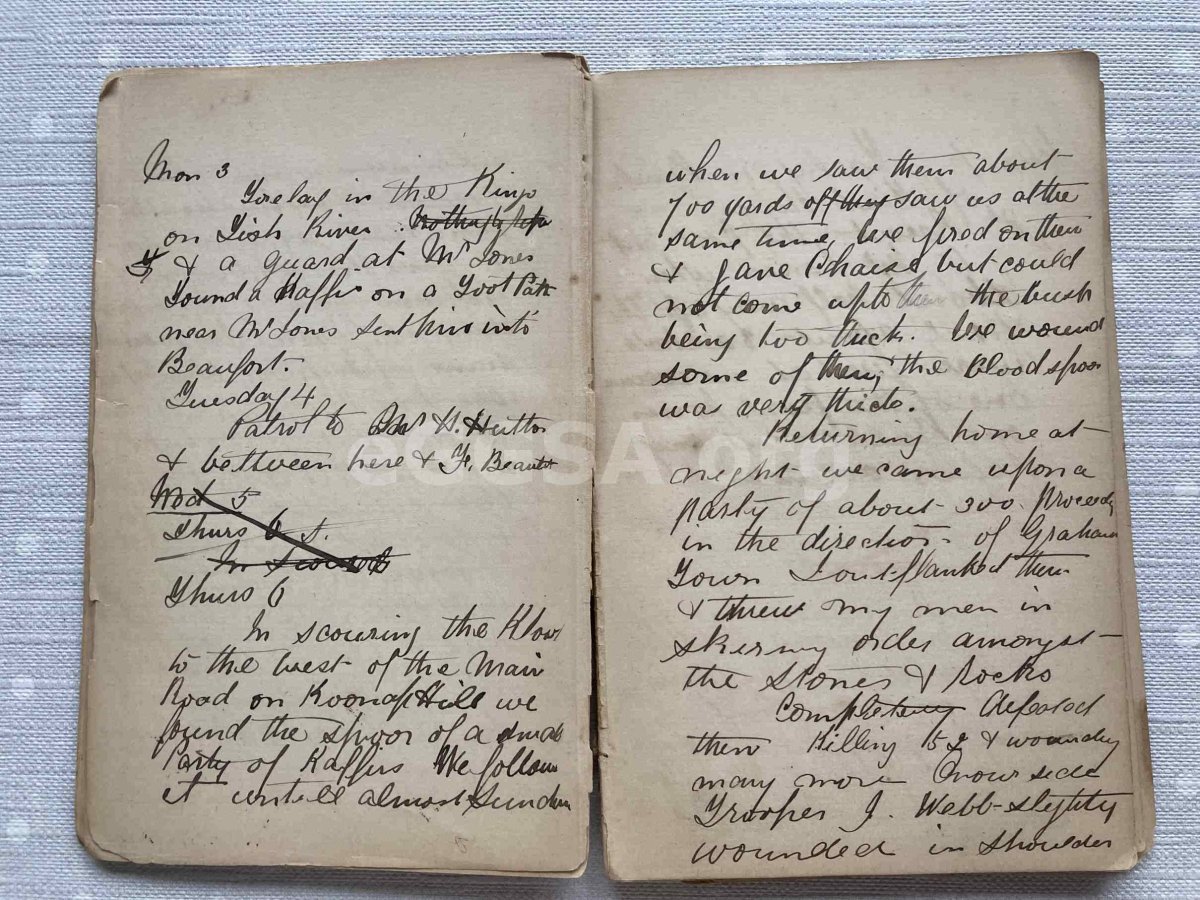 Mon 3
Forelay in the Kings
on Fish River
& a guard at Mr Jones
Found a Kaffir on a Foot Path
near Mr Jones sent him into
Beaufort.
Tuesday 4
Patrol to H. Hutton
& between here & F. Beaufort
Wed 5
Thurs 6
In
Thurs 6
In scouring the Kloof
to the west of the Main
Road on Koonap Hill we
found the spoor of a small
Party of Kaffirs We follow
it untill almost Sundown
when we saw them about
700 yards off they saw us at the
same time, We fired on them
& gave Chaise but could
not come up to them the bush
being too thick. We wound
some of them, the blood spoor
was very thick.
Returning home at
night we came upon a
party of about 300 proceedg
in the direction of Grahams
Town I outflanked them
& threw my men in
skirmy order amongst
the Stones & rocks
Completeuy defeated
them Killing 52 & woundg
many more On our side
Trooper J. Webb-slightly
wounded in shoulder
eGGSA.org